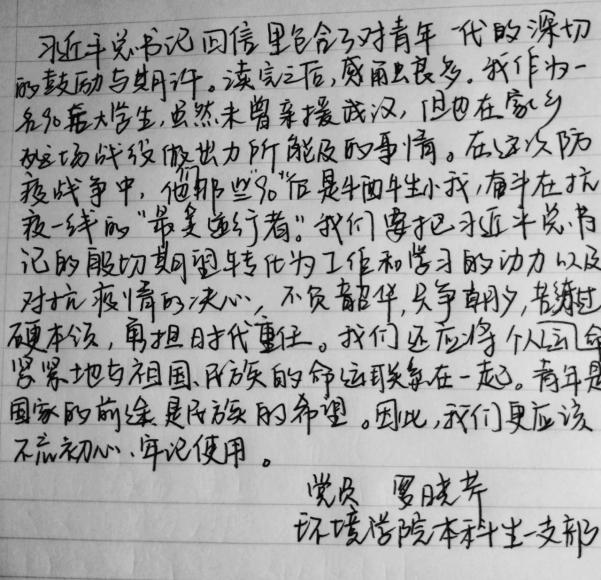 习近平总书记回信里包含了对青年一代的深切
的鼓励与期许。读完之后，感触良多。我作为一
名90后大学生，虽然未曾亲援武汉，但也在家乡
为这场战役做出力所能及的事情。在这次防
疫战争中，他们那些“90”后是牺牲小我，奋斗在抗
疫一线的“最美逆行者”。我们要把习近平总书
记的殷切期望转化为工作和学习的动力以及
对抗疫情的决心，不负韶华，只争朝夕，苦练过
硬本领，勇担时代重任。我们还应将个人命运
紧紧地与祖国、民族的命运联系在一起。青年是
国家的前途，是民族的希望。因此，我们更应该
不忘初心、牢记使用。
党员 罗晓芹
环境学院本科生一支部